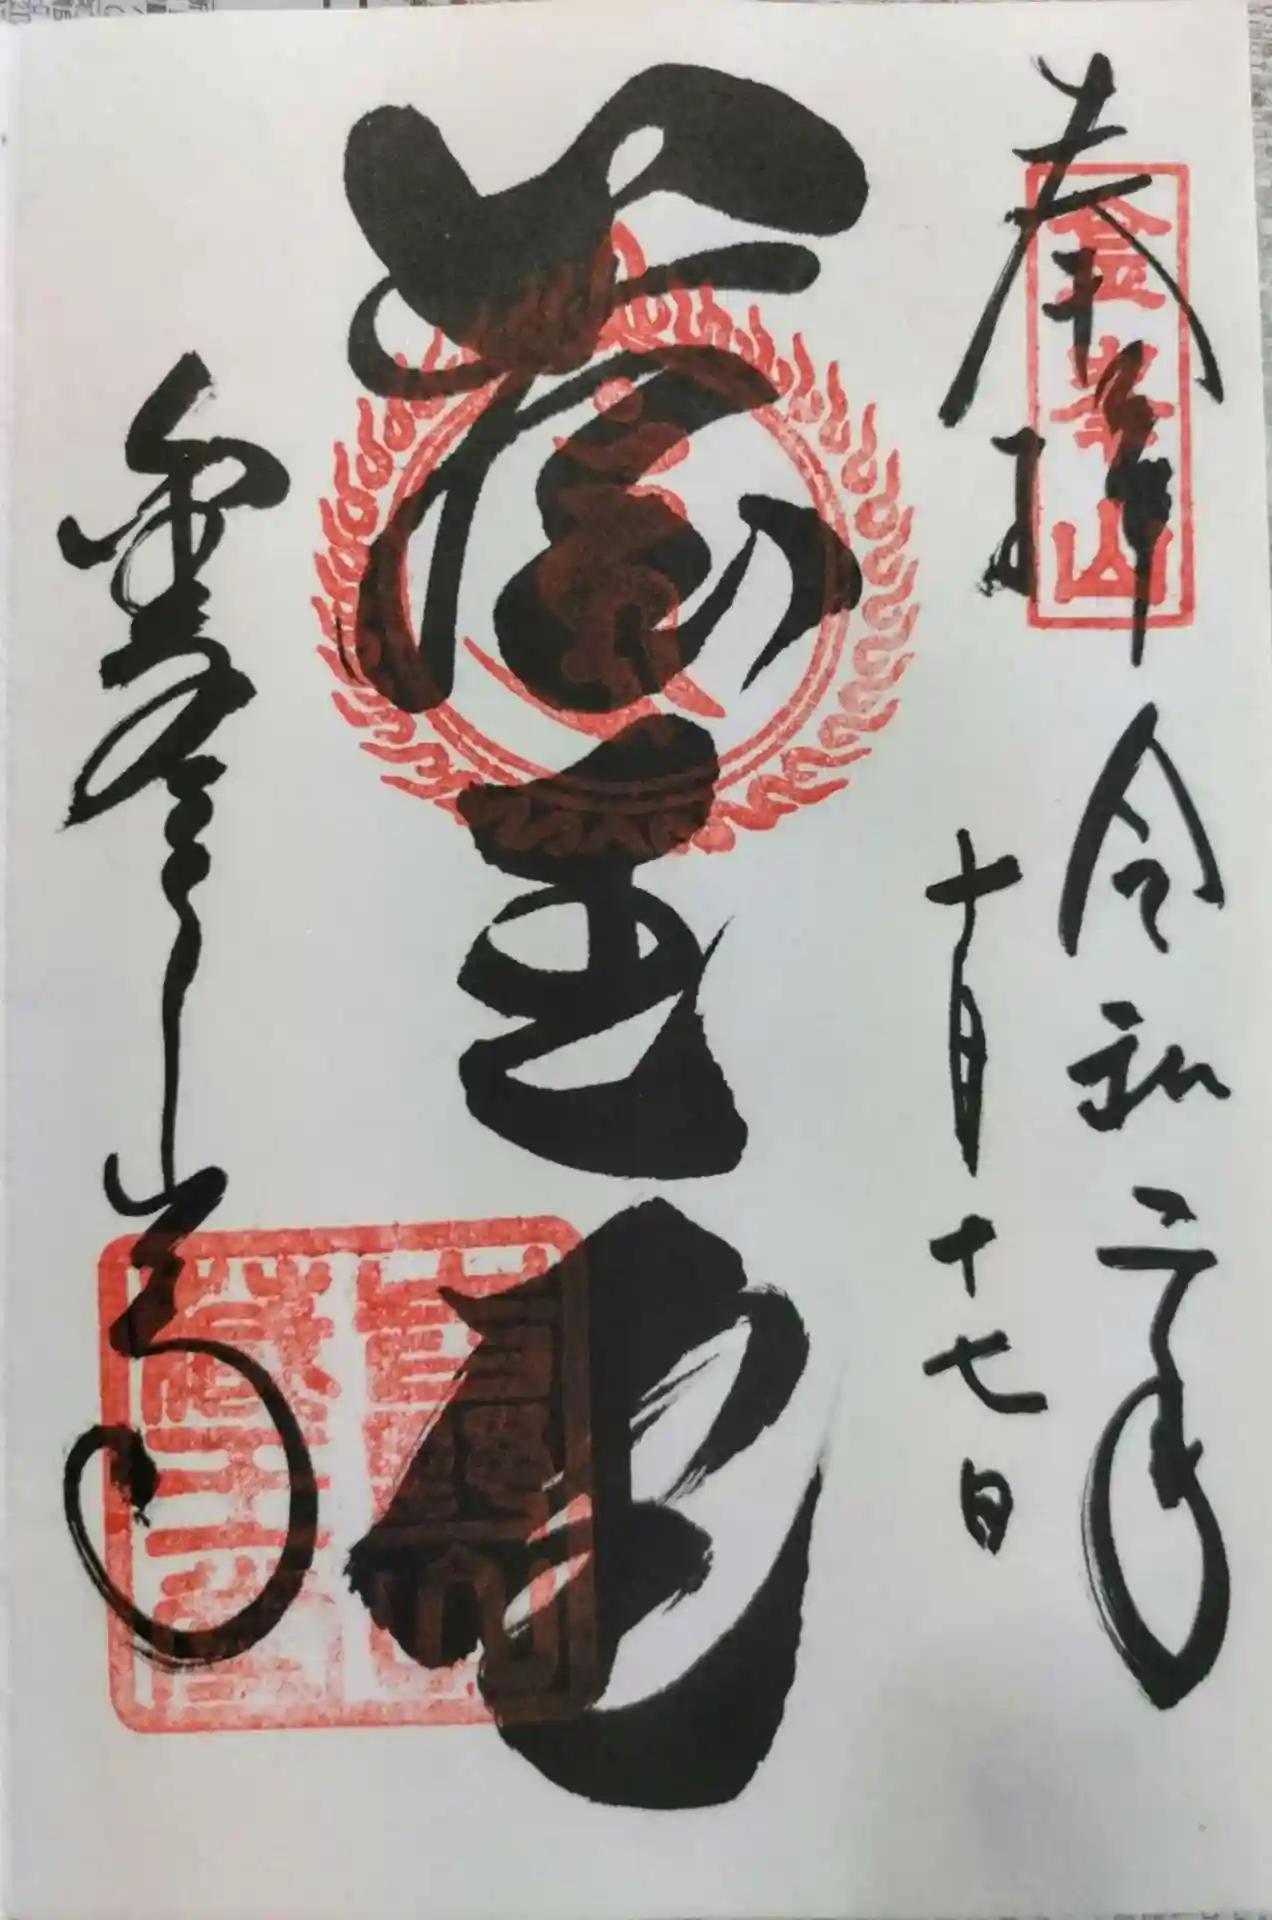 奉拝
金峯山
令和二年
十月十七日
蔵王堂
金峯山寺